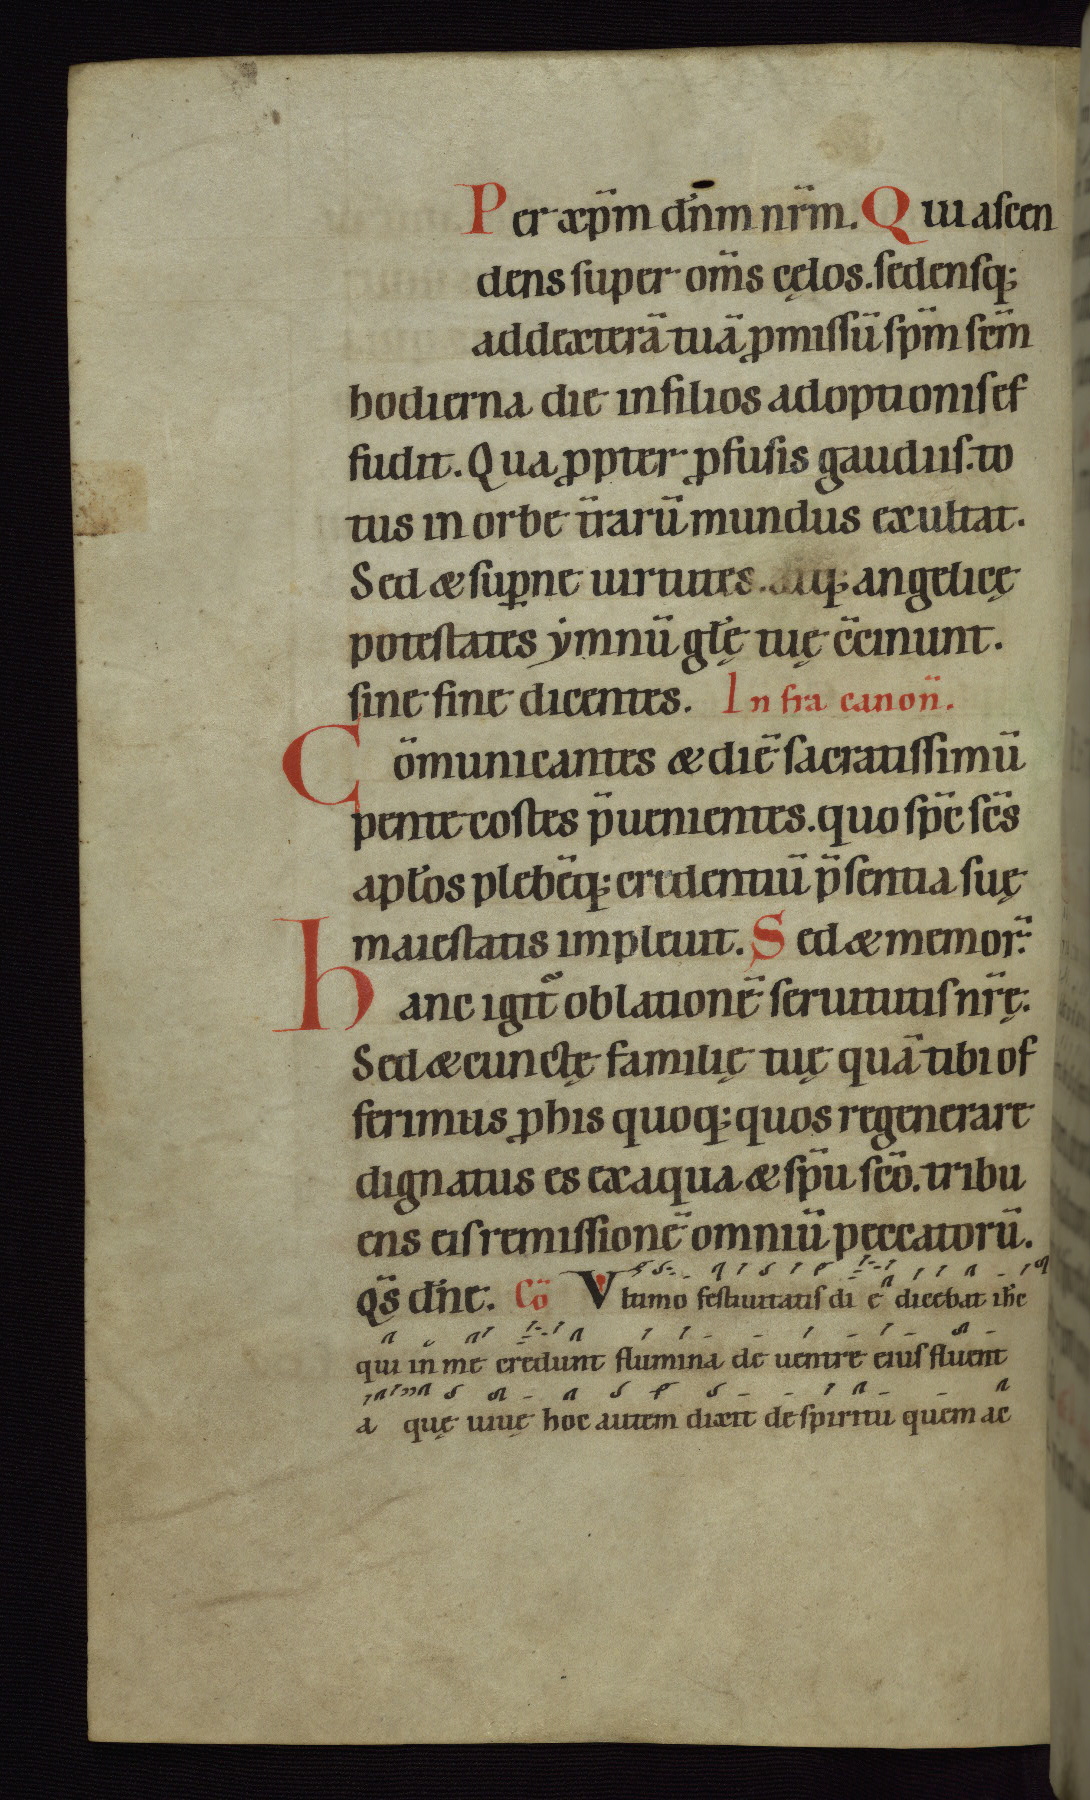 Per xp̄m dn̄m nr̄m. Qui ascen
dens super om̄s cęlos. sedensq;
ad dexterā tuā ꝓmissū sp̄m scm̄
hodierna die in filios adoptionis ef
fudit. Qua ꝓpter ꝓfusis gaudiis. to
tus in orbe tr̄arū mundus exultat.
Sed & suꝑne uirtutes. atq; angelicę
potestates ẏmnū gl̄ę tuę c̄cinunt.
sine fine dicentes. Infra canon̄.
Cōmunicantes & diē sacratissimū
pentecostes p̄uenientes. quo sp̄c sc̄s
apl̄os plebēq; credentiū p̄sentia suę
maiestatis impleuit. Sed & memor̄.
hanc igit̄ oblationē seruitutis nr̄ę.
Sed & cunctę familię tuę quā tibi of
ferimus ꝓ his quoq; quos regenerare
dignatus es ex aqua & sp̄u sc̄o. tribu
ens eis remissionē omniū peccatorū.
Qs̄ dn̄e. Cō Vltimo festiuitatis di e dicebat ih̄c
qui in me credunt flumina de uentre eius fluent
a quę uiuę hoc autem dixit de spiritu quem ac